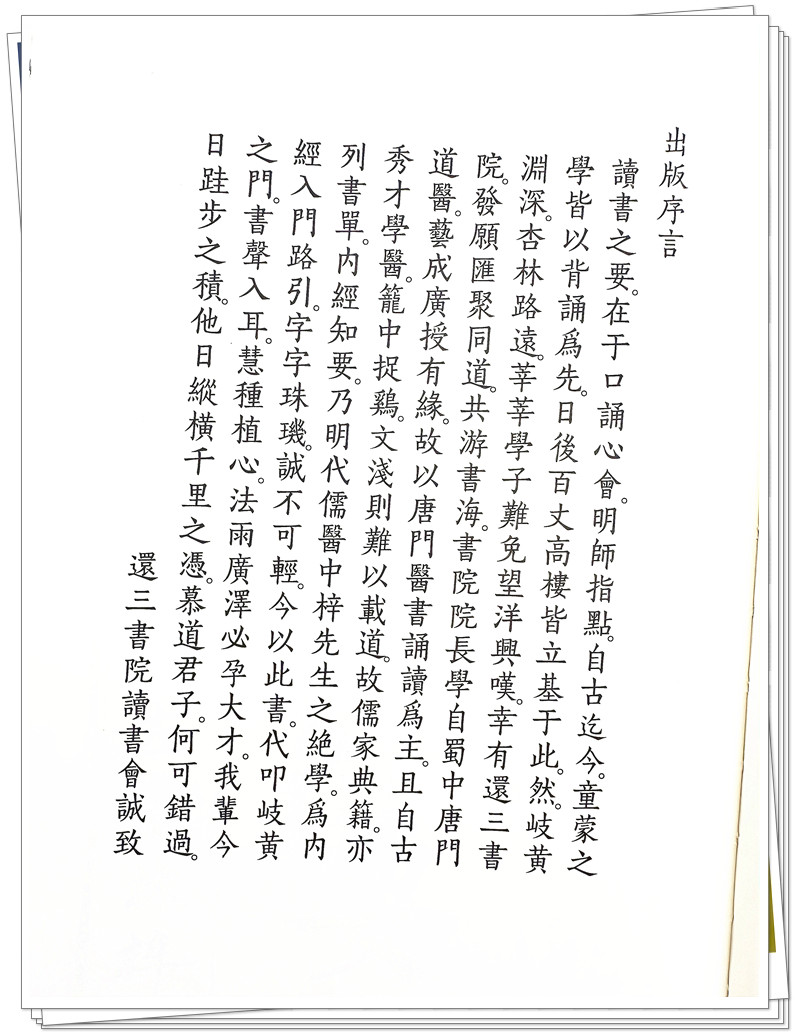 出版序言
讀書之要。在于口誦心會。明師指點。自古迄今。童蒙之
學皆以背誦爲先。日後百丈高樓皆立基于此。然。岐黄
淵深。杏林路遠。莘莘學子難免望洋興嘆。幸有還三書
院。發願匯聚同道。共游書海。書院院長學自蜀中唐門
道醫。藝成廣授有緣。故以唐門醫書誦讀爲主。且自古
秀才學醫。籠中捉鷄。文淺則難以載道。故儒家典籍。亦
列書單。内經知要。乃明代儒醫中梓先生之絶學。爲内
經入門路引。字字珠璣。誠不可輕。今以此書。代叩岐黄
之門。書聲入耳。慧種植心。法雨廣澤必孕大才。我輩今
日跬步之積。他日縱横千里之憑。慕道君子。何可錯過。
還三書院讀書會誠致